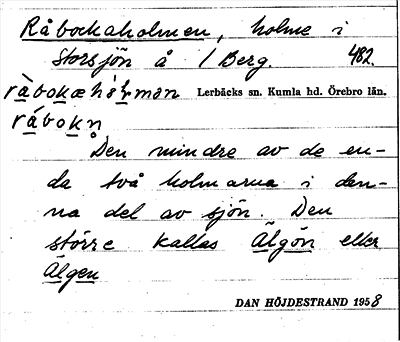 Råbockaholmen, holme i
Storsjön å 1 Berg. 482.
ràbokæhòḷmən Lerbäcks sn. Kumla hd. Örebro län.
råbokn
Den mindre av de en-
da två holmarna i den-
na del av sjön. Den
större kallas Älgön eller
Älgen
DAN HÖJDESTRAND 1958